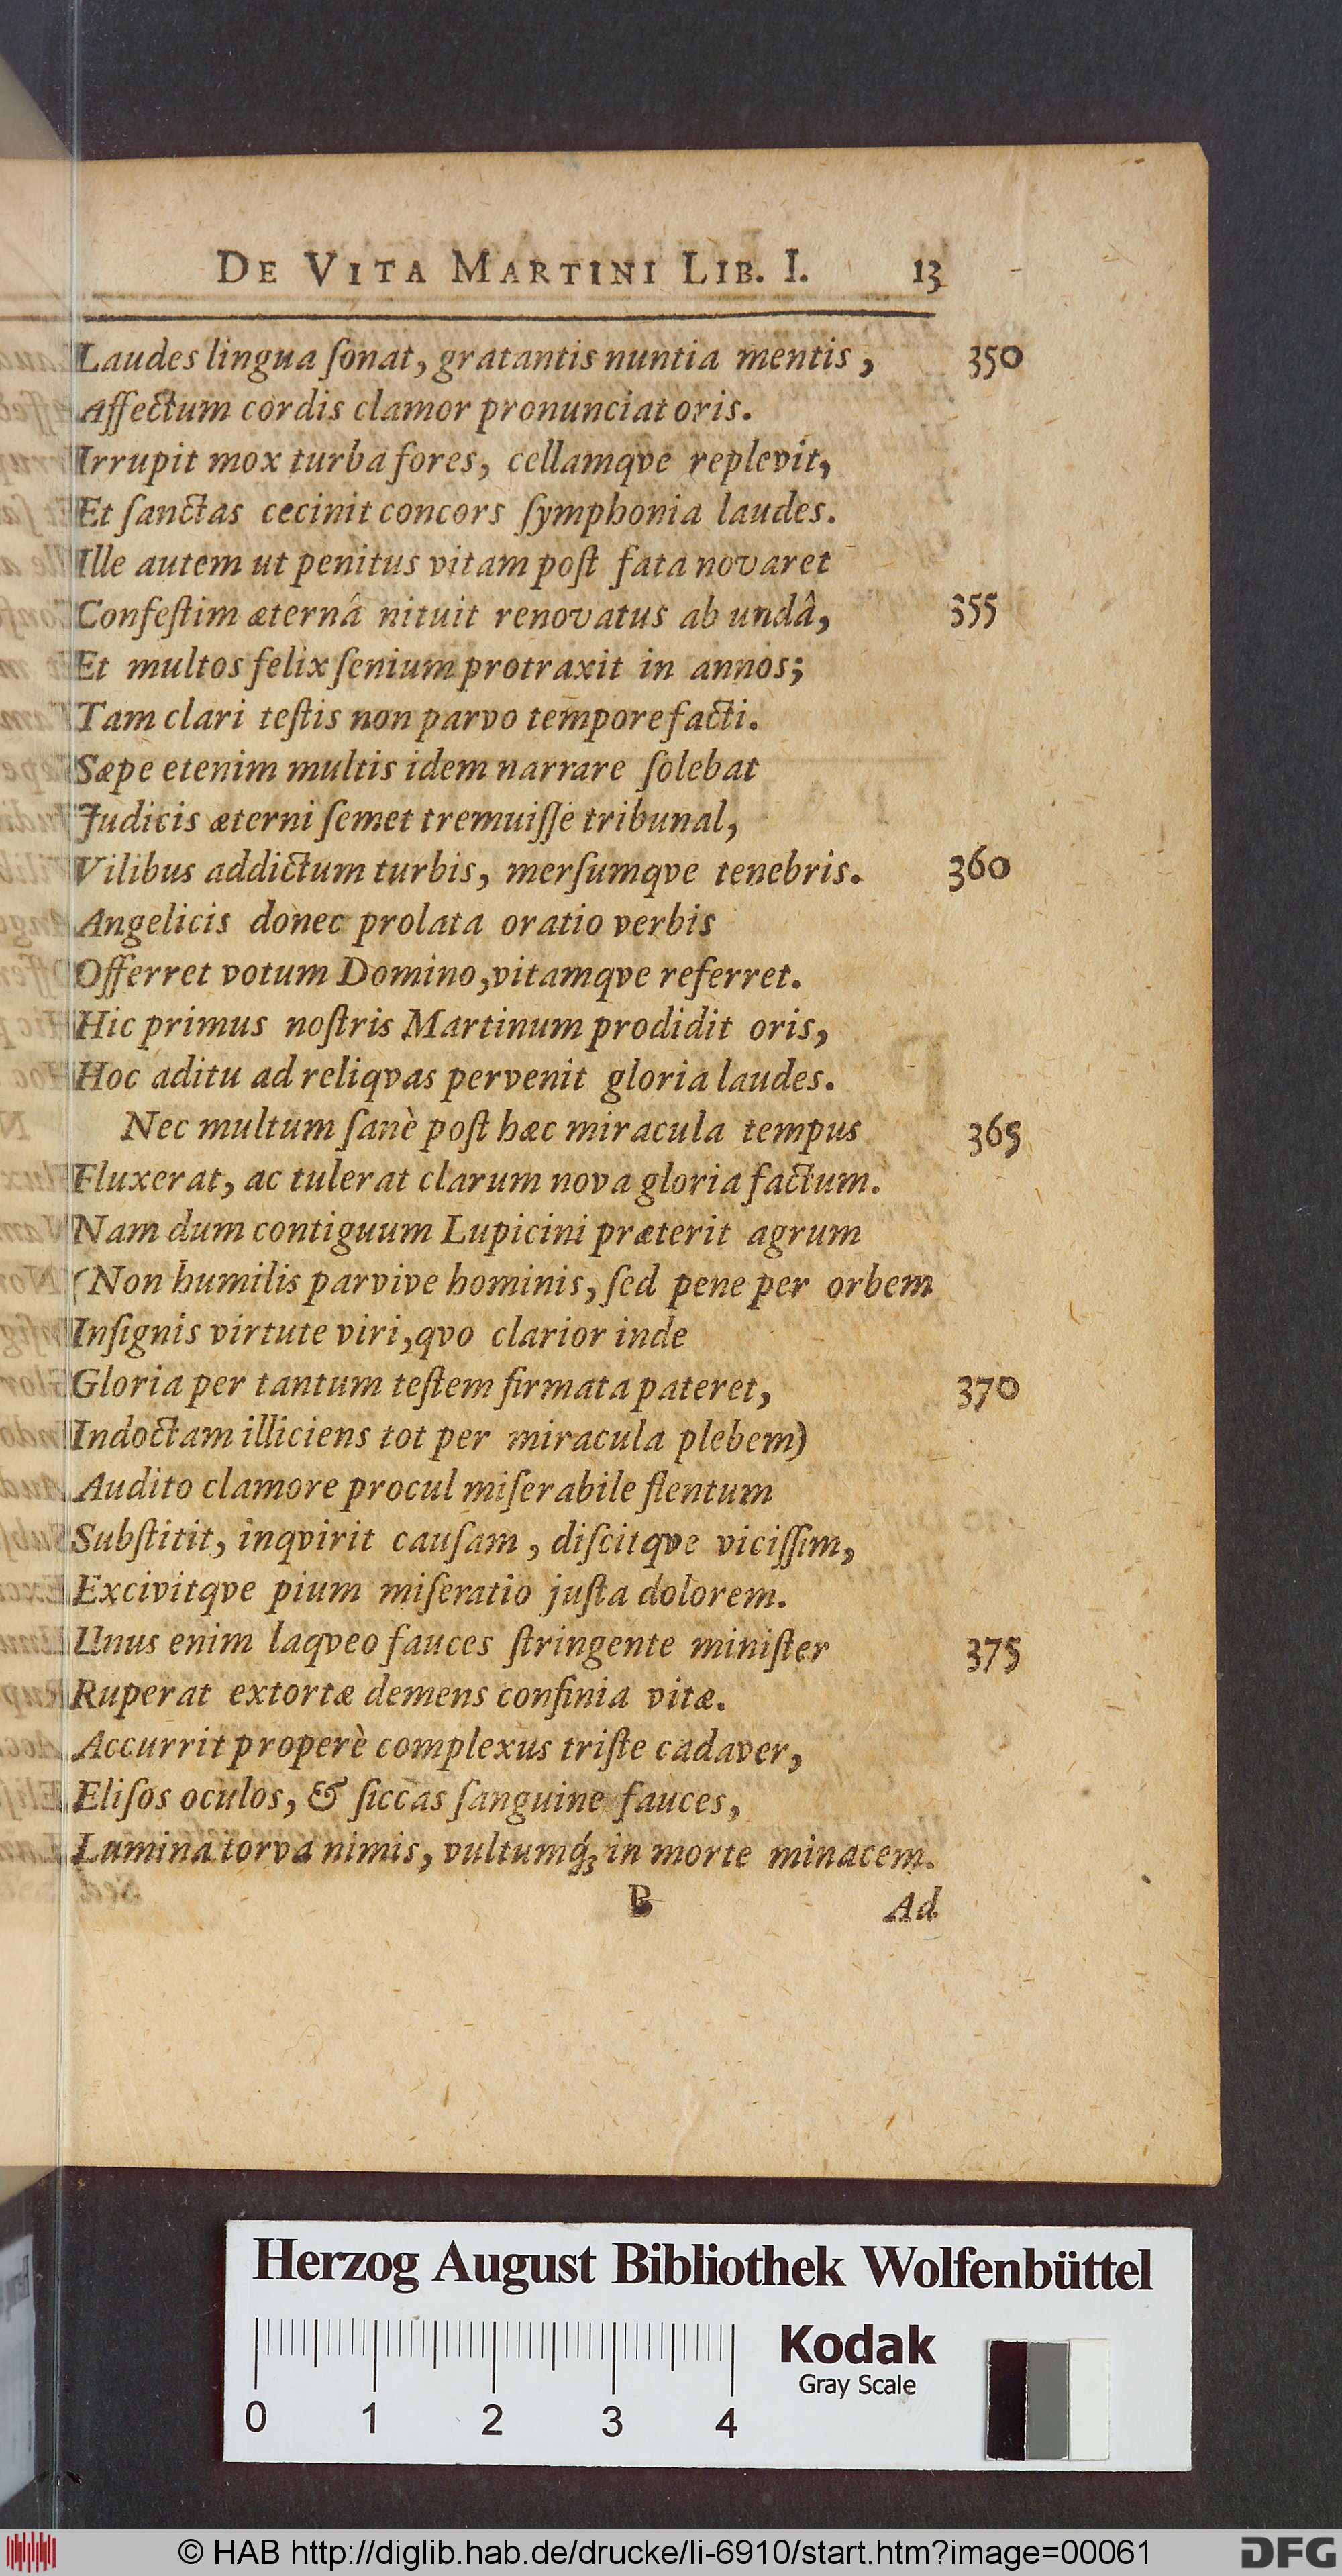 DE VITA MARTINI LIB. I. 13
Laudes lingua ſonat, gratantis nuntia mentis, 350
Affectum cordis clamor pronunciat oris.
Irrupit mox turba fores, cellamqve replevit,
Et ſanctas cecinit concors ſymphonia laudes.
Ille autem ut penitus vitam poſt fata novaret
Confeſtim æternâ nituit renovatus ab undâ, 355
Et multos felix ſenium protraxit in annos;
Tam clari teſtis non parvo tempore facti.
Sæpe etenim multis idem narrare ſolebat
Judicis æterni ſemet tremuiſſe tribunal,
Vilibus addictum turbis, merſumqve tenebris. 360
Angelicis donec prolata oratio verbis
Offerret votum Domino, vitamqve referret.
Hic primus noſtris Martinum prodidit oris,
Hoc aditu ad reliqvas pervenit gloria laudes.
Nec multum ſanè poſt hæc miracula tempus 365
Fluxerat, ac tulerat clarum nova gloria factum.
Nam dum contiguum Lupicini præterit agrum
(Non humilis parvive hominis, ſed pene per orbem
Inſignis virtute viri, qvo clarior inde
Gloria per tantum teſtem firmata pateret, 370
Indoctam illiciens tot per miracula plebem)
Audito clamore procul miſerabile flentum
Subſtitit, inqvirit cauſam, diſcitqve viciſſim,
Excivitqve pium miſeratio juſta dolorem.
Unus enim laqveo fauces ſtringente miniſter 375
Ruperat extortæ demens confinia vitæ.
Accurrit properè complexus triſte cadaver,
Eliſos oculos, & ſiccas ſanguine fauces,
Lumina torva nimis, vultumq́; in morte minacem.
B Ad
Herzog August Bibliothek Wolfenbüttel
Kodak
Gray Scale
0 1 2 3 4
© HAB http://diglib.hab.de/drucke/li-6910/start.htm?image=00061 DFG